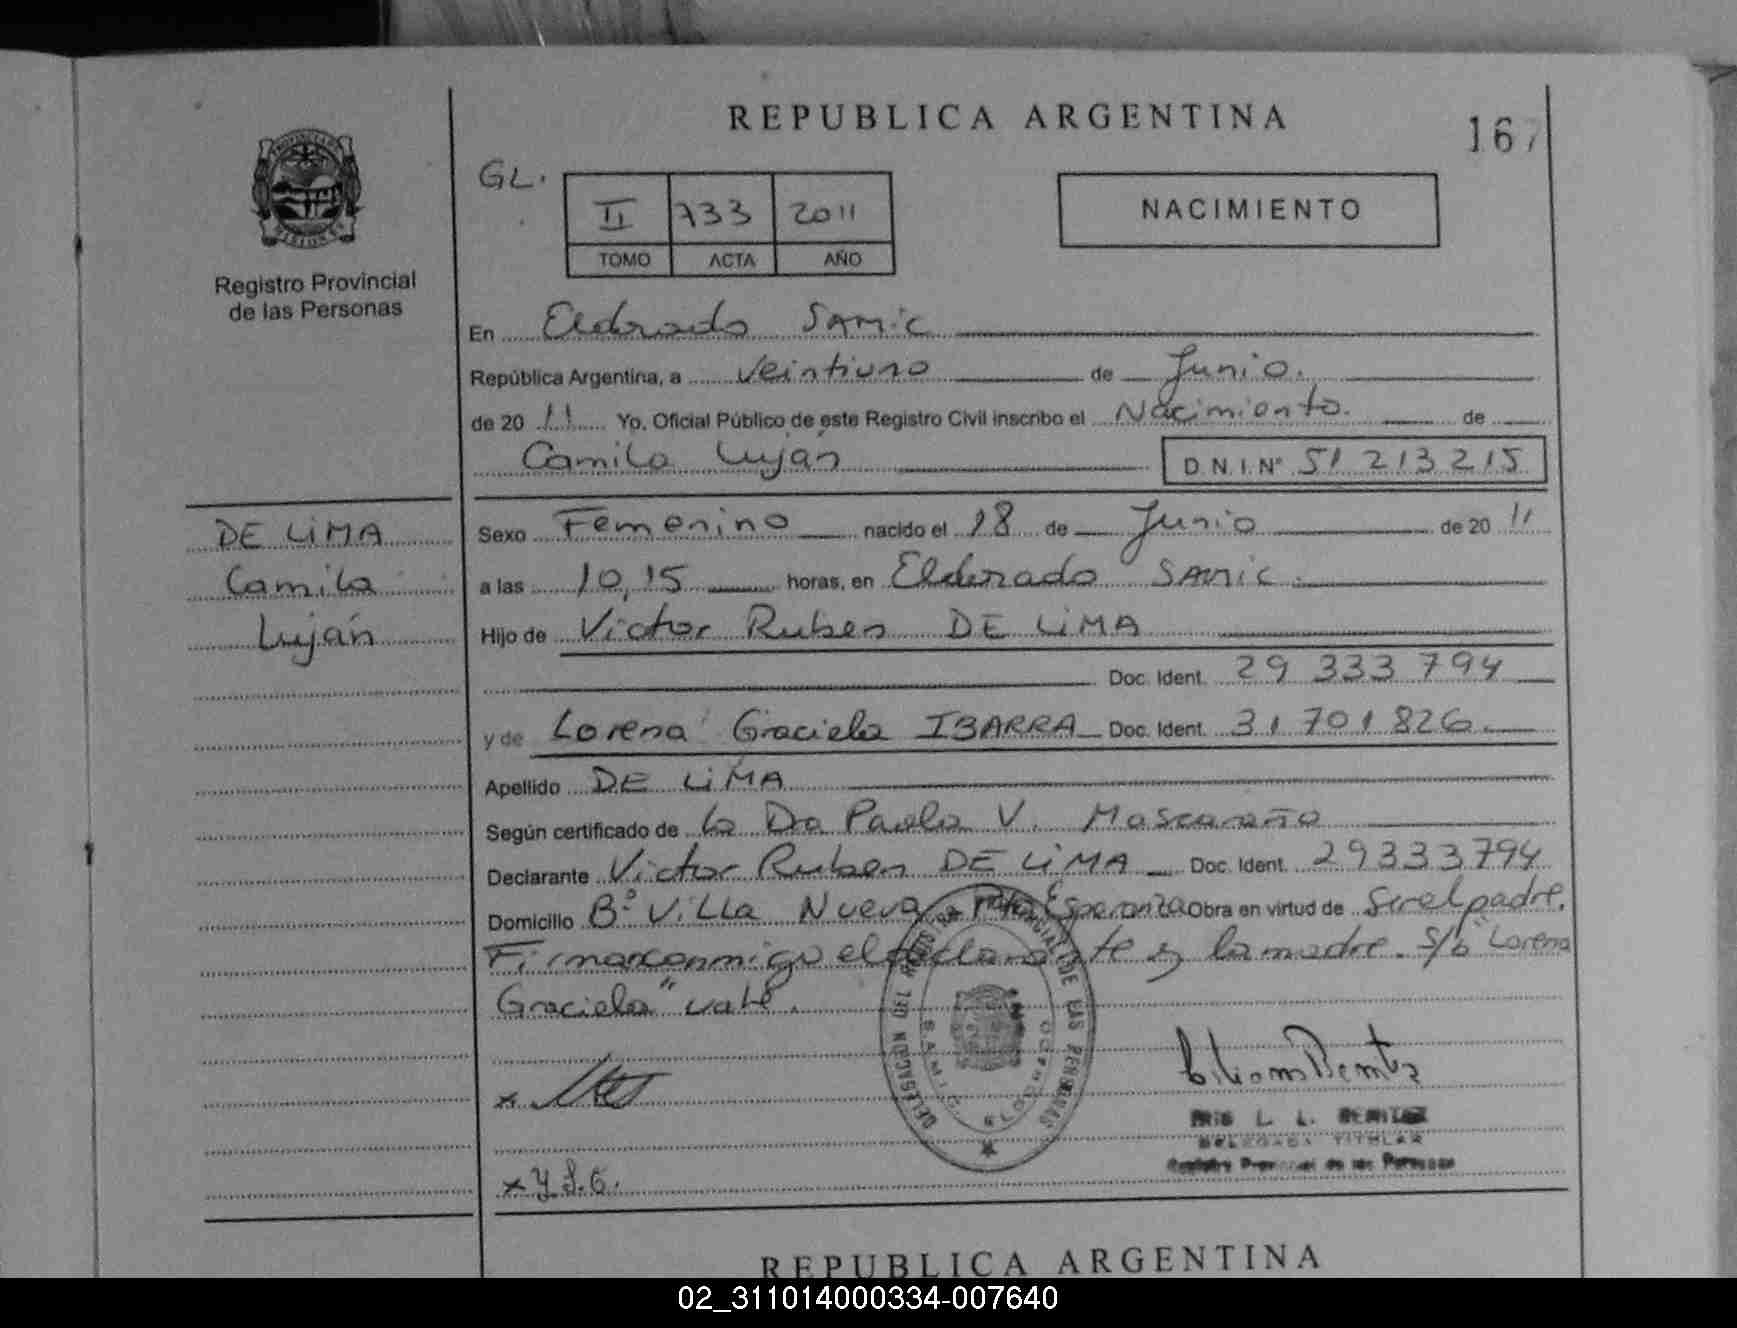 REPUBLICA ARGENTINA
167
PROVINCIA DE MISIONES
Registro Provincial
de las Personas
GL.
II 733 2011
TOMO ACTA AÑO
NACIMIENTO
En Eldorado SAMiC
República Argentina, a Veintiuno de Junio.
de 20 11 Yo, Oficial Público de este Registro Civil inscribo el Nacimiento. de
Camila Luján
D.N.I.Nº 51 213 215
DE LiMA
Camila
Luján
Sexo Femenino nacido el 18 de Junio de 20 11
a las 10,15 horas, en Eldorado SAMiC.
Hijo de Victor Ruben DE LiMA
Doc. Ident. 29 333 794
y de Lorena Graciela IBARRA Doc. Ident. 31 701 826
Apellido DE LiMA
Según certificado de la Dra Paola V. Mascaraño
Declarante Victor Ruben DE LiMA Doc. Ident. 29333794
Domicilio Bº ViLLa Nueva Pto Esperanza Obra en virtud de Ser el padre.
Firman conmigo el declarante y la madre. S/b "Lorena
Graciela" vale.
DELEGACION DEL REGISTRO PROVINCIAL DE LAS PERSONAS
S.A.M.I.C.
ELDORADO
x
x Y.S.G.
IRIS L. L. BENITEZ
DELEGADA TITULAR
Registro Provincial de las Personas
REPUBLICA ARGENTINA
02_311014000334-007640